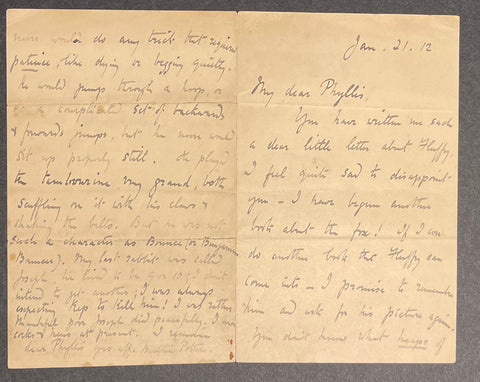 Jan. 21. 12
My dear Phyllis,
You have written me such
a dear little letter about Fluffy,
I feel quite sad to disappoint
you – I have begun another
book about the fox! If I can
do another book that Fluffy can
come into – I promise to remember
him and ask for his picture again.
You don't know what heaps of
never would do any trick that required
patience, like dying or begging quietly.
He would jump through a hoop, or
do a complicated set of backwards
& forwards jumps, but he never would
sit up properly still. He played
the tambourine very grand, both
scuffling on it with his claws &
shaking the bells. But he was not
such a character as Bounce (or Benjamin
Bouncer). My last rabbit was called
Joseph, he lived to be 9 or 10, I don't
intend to get another; I was always
expecting Kep to kill him! I was rather
thankful poor Joseph died peacefully. I have
cocks & hens at present. I remain
dear Phyllis yrs aff. Beatrix Potter.